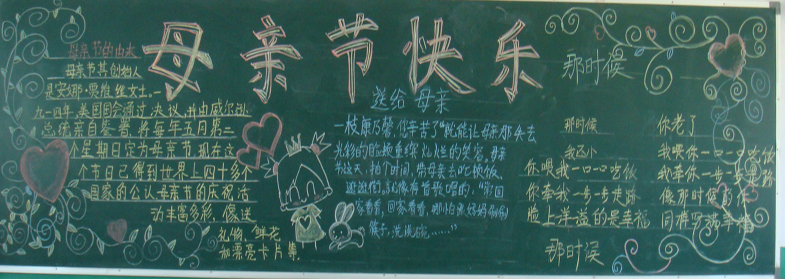 母亲节快乐
母亲节的由来
母亲节其创始人
是安娜·贾维丝女士.一
九一四年,美国国会通过决议,并由威尔逊
总统亲自签署,将每年五月第二
个星期日定为母亲节.现在这
个节日已得到世界上四十多个
国家的公认.母亲节的庆祝活
动丰富多彩,像送
礼物、鲜花
和漂亮卡片等.
送给母亲
一枝康乃馨,一句辛苦了"就能让母亲那失去
光彩的脸颊重绽灿烂的笑容。母亲
节这天,抽个时间,带母亲去吃顿饭,
逛逛街,就像有首歌唱的,"常回
家看看,回家看看,哪怕帮妈妈刷刷
筷子,洗洗碗……"
那时候
那时候
我还小
你喂我一口一口吃饭
你牵我一步一步走路
脸上洋溢的是幸福
那时候
你老了
我喂你一口一口吃饭
我牵你一步一步走路
像那时候的你
同样写满幸福